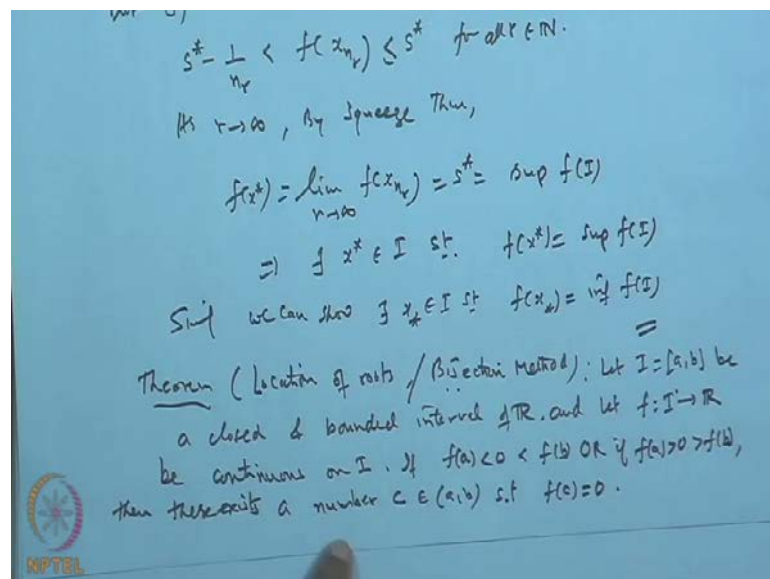 s* - 1/n_r < f(x_{n_r}) ≤ s* for all r ∈ ℕ.
As r→∞, By Squeeze Thm,
f(x*) = lim_{r→∞} f(x_{n_r}) = s* = sup f(I)
⇒ ∃ x* ∈ I st. f(x*) = sup f(I)
Sim^l we can show ∃ x_* ∈ I st f(x_*) = inf f(I)
Theorem (Location of roots / Bisection Method): Let I = [a,b] be
a closed & bounded interval of ℝ. and let f: I→ℝ
be continuous on I. If f(a)<0<f(b) OR if f(a)>0>f(b),
then there exists a number c ∈ (a,b) s.t f(c)=0.
NPTEL